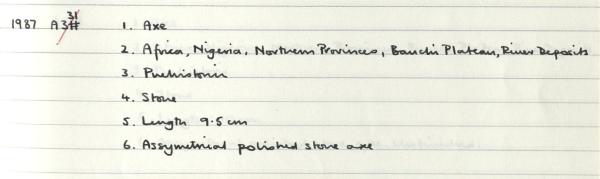 1987 A3 31 1. Axe
2. Africa, Nigeria, Northern Provinces, Bauchi Plateau, River Deposits
3. Prehistoric
4. Stone
5. Length 9.5 cm
6. Assymetrial polished stone axe